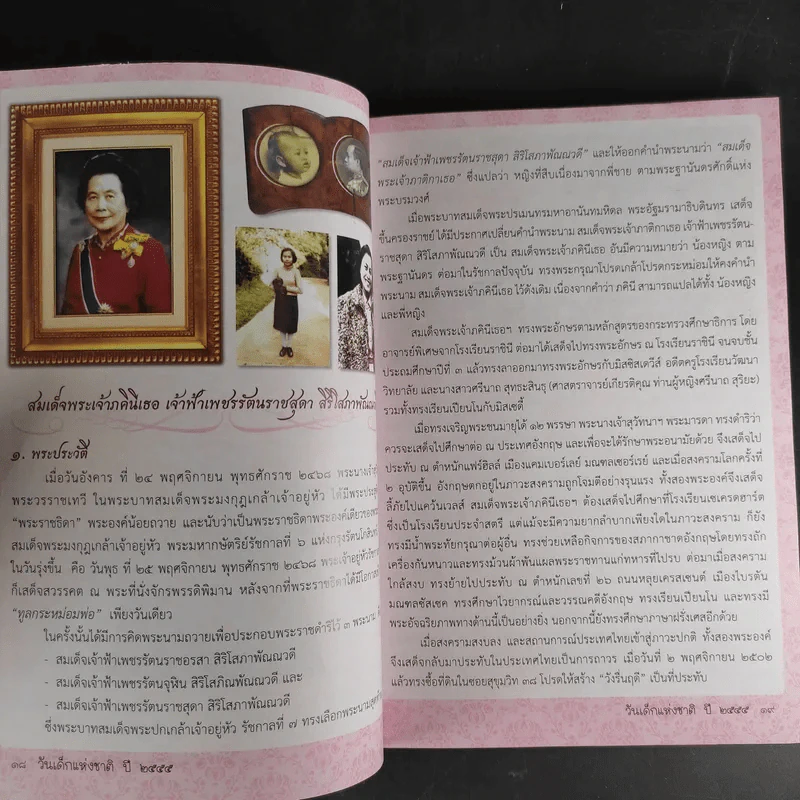 สมเด็จพระเจ้าภคินีเธอ เจ้าฟ้าเพชรรัตนราชสุดา สิริโสภาพัณณ
๑. พระประวัติ
เมื่อวันอังคาร ที่ ๒๔ พฤศจิกายน พุทธศักราช ๒๔๖๘ พระนางเจ้าสุ
พระวรราชเทวี ในพระบาทสมเด็จพระมงกุฎเกล้าเจ้าอยู่หัว ได้มีพระประสู
"พระราชธิดา" พระองค์น้อยถวาย และนับว่าเป็นพระราชธิดาพระองค์เดียวของพระ
สมเด็จพระมงกุฎเกล้าเจ้าอยู่หัว พระมหากษัตริย์รัชกาลที่ ๖ แห่งกรุงรัตนโกสินท
ในวันรุ่งขึ้น คือ วันพุธ ที่ ๒๕ พฤศจิกายน พุทธศักราช ๒๔๖๘ พระเจ้าอยู่หัวรัชกา
ก็เสด็จสวรรคต ณ พระที่นั่งจักรพรรดิพิมาน หลังจากที่พระราชธิดาได้มีโอกาส
"ทูลกระหม่อมพ่อ" เพียงวันเดียว
ในครั้งนั้นได้มีการคิดพระนามถวายเพื่อประกอบพระราชดำริไว้ ๓ พระนาม
- สมเด็จเจ้าฟ้าเพชรรัตนราชอรสา สิริโสภาพัณณวดี
- สมเด็จเจ้าฟ้าเพชรรัตนจุฬิน สิริโสภิณพัณณวดี และ
- สมเด็จเจ้าฟ้าเพชรรัตนราชสุดา สิริโสภาพัณณวดี
ซึ่งพระบาทสมเด็จพระปกเกล้าเจ้าอยู่หัว รัชกาลที่ ๗ ทรงเลือกพระนามสุดท้
๑๘ วันเด็กแห่งชาติ ปี ๒๕๕๕
"สมเด็จเจ้าฟ้าเพชรรัตนราชสุดา สิริโสภาพัณณวดี" และให้ออกคำนำพระนามว่า "สมเด็จ
พระเจ้าภาติกาเธอ" ซึ่งแปลว่า หญิงที่สืบเนื่องมาจากพี่ชาย ตามพระฐานันดรศักดิ์แห่ง
พระบรมวงศ์
เมื่อพระบาทสมเด็จพระปรเมนทรมหาอานันทมหิดล พระอัฐมรามาธิบดินทร เสด็จ
ขึ้นครองราชย์ ได้มีประกาศเปลี่ยนคำนำพระนาม สมเด็จพระเจ้าภาติกาเธอ เจ้าฟ้าเพชรรัตน-
ราชสุดา สิริโสภาพัณณวดี เป็น สมเด็จพระเจ้าภคินีเธอ อันมีความหมายว่า น้องหญิง ตาม
พระฐานันดร ต่อมาในรัชกาลปัจจุบัน ทรงพระกรุณาโปรดเกล้าโปรดกระหม่อมให้คงคำนำ
พระนาม สมเด็จพระเจ้าภคินีเธอ ไว้ดังเดิม เนื่องจากคำว่า ภคินี สามารถแปลได้ทั้ง น้องหญิง
และพี่หญิง
สมเด็จพระเจ้าภคินีเธอฯ ทรงพระอักษรตามหลักสูตรของกระทรวงศึกษาธิการ โดย
อาจารย์พิเศษจากโรงเรียนราชินี ต่อมาได้เสด็จไปทรงพระอักษร ณ โรงเรียนราชินี จนจบชั้น
ประถมศึกษาปีที่ ๓ แล้วทรงลาออกมาทรงพระอักษรกับมิสซิสเดวีส์ อดีตครูโรงเรียนวัฒนา
วิทยาลัย และนางสาวศรีนาถ สุทธะสินธุ (ศาสตราจารย์เกียรติคุณ ท่านผู้หญิงศรีนาถ สุริยะ)
รวมทั้งทรงเรียนเปียนโนกับมิสเซตี้
เมื่อทรงเจริญพระชนมายุได้ ๑๒ พรรษา พระนางเจ้าสุวัทนาฯ พระมารดา ทรงดำริว่า
ควรจะเสด็จไปศึกษาต่อ ณ ประเทศอังกฤษ และเพื่อจะได้รักษาพระอนามัยด้วย จึงเสด็จไป
ประทับ ณ ตำหนักแฟร์ฮิลล์ เมืองแคมเบอร์เลย์ มณฑลเซอร์เรย์ และเมื่อสงครามโลกครั้งที่
๒ อุบัติขึ้น อังกฤษตกอยู่ในภาวะสงครามถูกโจมตีอย่างรุนแรง ทั้งสองพระองค์จึงเสด็จ
ลี้ภัยไปแคว้นเวลส์ สมเด็จพระเจ้าภคินีเธอฯ ต้องเสด็จไปศึกษาที่โรงเรียนเซเครดฮาร์ต
ซึ่งเป็นโรงเรียนประจำสตรี แต่แม้จะมีความยากลำบากเพียงใดในภาวะสงคราม ก็ยัง
ทรงมีน้ำพระทัยกรุณาต่อผู้อื่น ทรงช่วยเหลือกิจการของสภากาชาดอังกฤษโดยทรงถัก
เครื่องกันหนาวและทรงม้วนผ้าพันแผลพระราชทานแก่ทหารที่ไปรบ ต่อมาเมื่อสงคราม
ใกล้สงบ ทรงย้ายไปประทับ ณ ตำหนักเลขที่ ๒๖ ถนนหลุยเครสเซนต์ เมืองไบรตัน
มณฑลซัสเซค ทรงศึกษาไวยากรณ์และวรรณคดีอังกฤษ ทรงเรียนเปียนโน และทรงมี
พระอัจฉริยภาพทางด้านนี้เป็นอย่างยิ่ง นอกจากนี้ยังทรงศึกษาภาษาฝรั่งเศสอีกด้วย
เมื่อสงครามสงบลง และสถานการณ์ประเทศไทยเข้าสู่ภาวะปกติ ทั้งสองพระองค์
จึงเสด็จกลับมาประทับในประเทศไทยเป็นการถาวร เมื่อวันที่ ๒ พฤศจิกายน ๒๕๐๒
แล้วทรงซื้อที่ดินในซอยสุขุมวิท ๓๘ โปรดให้สร้าง "วังรื่นฤดี" เป็นที่ประทับ
วันเด็กแห่งชาติ ปี ๒๕๕๕ ๑๙